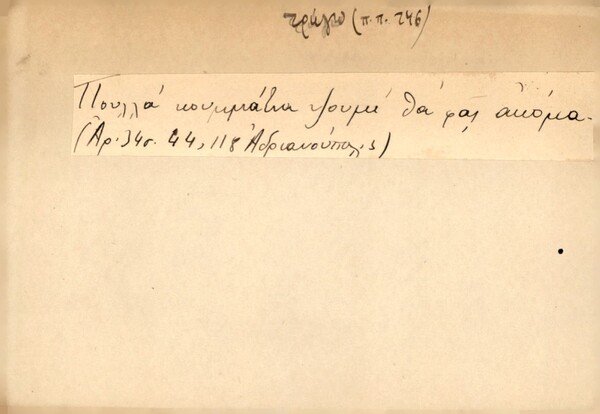 τρώγω (π.π. 246)
Πουλλά κουμμάτια ψουμί θά φάς ἀκόμα.
(Ἀρ. 34 σ. 44, 118 Ἀδριανούπολις)